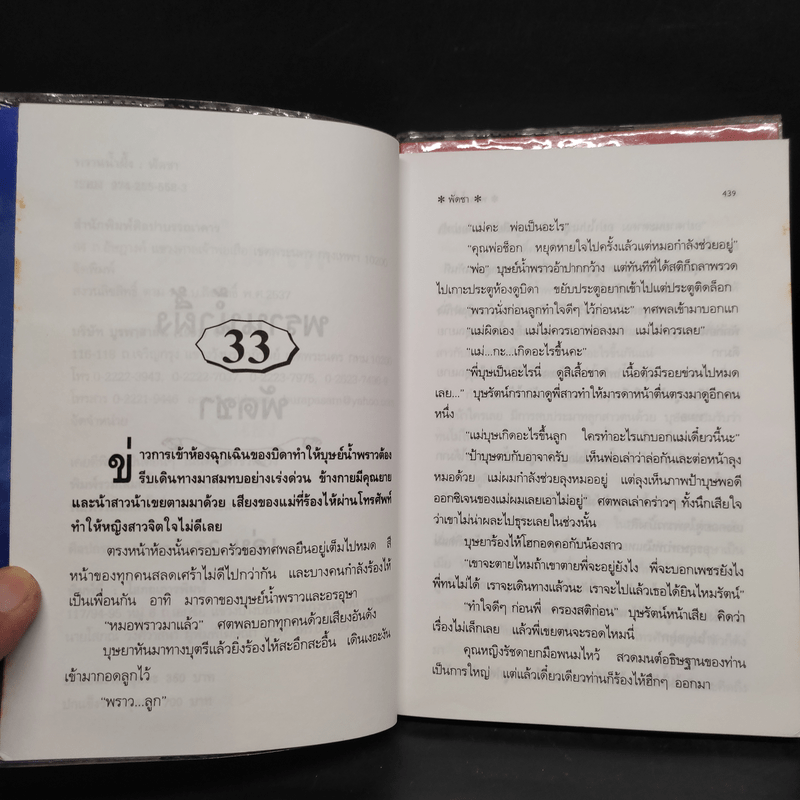 33
ข่าวการเข้าห้องฉุกเฉินของบิดาทำให้บุษย์น้ำพราวต้อง
รีบเดินทางมาสมทบอย่างเร่งด่วน ข้างกายมีคุณยาย
และน้าสาวน้าเขยตามมาด้วย เสียงของแม่ที่ร้องไห้ผ่านโทรศัพท์
ทำให้หญิงสาวจิตใจไม่ดีเลย
ตรงหน้าห้องนั้นครอบครัวของทศพลยืนอยู่เต็มไปหมด สี
หน้าของทุกคนสลดเศร้าไม่ดีไปกว่ากัน และบางคนกำลังร้องไห้
เป็นเพื่อนกัน อาทิ มารดาของบุษย์น้ำพราวและอรอุษา
“หมอพราวมาแล้ว” ศตพลบอกทุกคนด้วยเสียงอันดัง
บุษยาหันมาทางบุตรีแล้วยิ่งร้องไห้สะอึกสะอื้น เดินเงอะงัน
เข้ามากอดลูกไว้
“พราว...ลูก”
* พัดชา *
439
“แม่คะ พ่อเป็นอะไร”
“คุณพ่อช็อก หยุดหายใจไปครั้งแล้วแต่หมอกำลังช่วยอยู่”
“พ่อ” บุษย์น้ำพราวอ้าปากกว้าง แต่ทันทีที่ได้สติก็ถลาพรวด
ไปเกาะประตูห้องดูบิดา ขยับประตูอยากเข้าไปแต่ประตูติดล็อก
“พราวนั่งก่อนลูกทำใจดีๆ ไว้ก่อนนะ” ทศพลเข้ามาบอกแก
“แม่ผิดเอง แม่ไม่ควรเอาพ่อลงมา แม่ไม่ควรเลย”
“แม่...กะ...เกิดอะไรขึ้นคะ”
“พี่บุษเป็นอะไรนี่ ดูสิเสื้อขาด เนื้อตัวมีรอยข่วนไปหมด
เลย...” บุษรัตน์กรากมาดูพี่สาวทำให้มารดาหน้าตื่นตรงมาดูอีกคน
หนึ่ง
“แม่บุษเกิดอะไรขึ้นลูก ใครทำอะไรแกบอกแม่เดี๋ยวนี้นะ”
“ป้าบุษตบกับอาจาครับ เห็นพ่อเล่าว่าล่อกันเละต่อหน้าลุง
หมอด้วย แม่ผมกำลังช่วยลุงหมออยู่ แต่ลุงเห็นภาพป้าบุษพอดี
ออกซิเจนของแม่ผมเลยเอาไม่อยู่” ศตพลเล่าคร่าวๆ ทั้งนึกเสียใจ
ว่าเขาไม่น่าผละไปธุระเลยในช่วงนั้น
บุษยาร้องไห้โฮกอดคอกับน้องสาว
“เขาจะตายไหมถ้าเขาตายพี่จะอยู่ยังไง พี่จะบอกเพชรยังไง
พี่ทนไม่ได้ เราจะเดินทางแล้วนะ เราจะไปแล้วเธอได้ยินไหมรัตน์”
“ทำใจดีๆ ก่อนพี่ ครองสติก่อน” บุษรัตน์หน้าเสีย คิดว่า
เรื่องไม่เล็กเลย แล้วพี่เขยตนจะรอดไหมนี่
คุณหญิงรัชดายกมือพนมไหว้ สวดมนต์อธิษฐานของท่าน
เป็นการใหญ่ แต่แล้วเดี๋ยวเดียวท่านก็ร้องไห้ฮึกๆ ออกมา